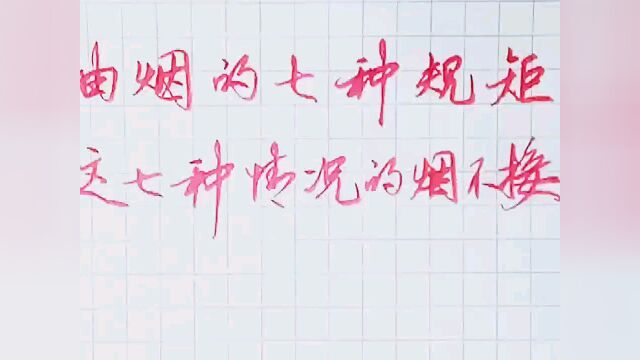 由烟的七种规矩
这七种情况的烟不接